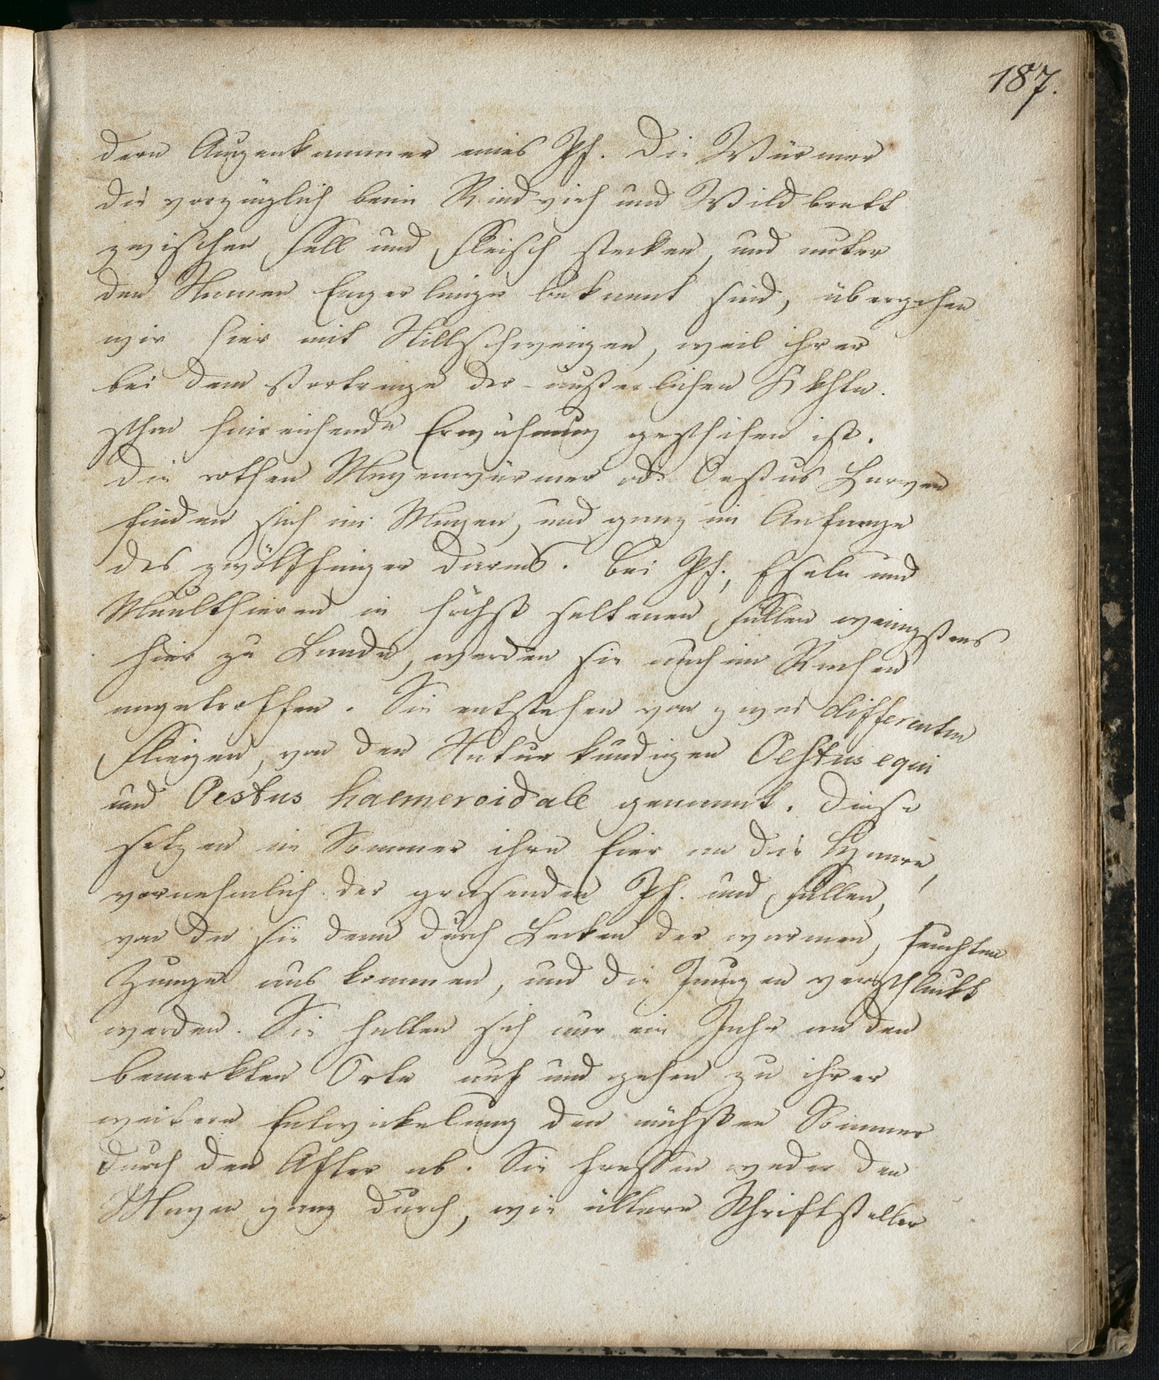 187.
dern Augenkammer eines Pf. Die Würmer
die vorzüglich beim Rindvieh und Wildbrett
zwischen Fell und Fleisch stecken, und unter
den Namen Engerlinge bekannt sind, übergehen
wir hier mit Stillschweigen, weil ihrer
bei dem Vortrage der äußerlichen
schon hinreichende Erwähnung geschehen ist.
Die rothen Magenwürmer od. Oestus Larven
finden sich im Magen, und ganz im Anfange
des zwölffinger Darms. Bei Pf., Eseln und
Maulthieren in höchst seltenen Fällen wenigstens
hier zu Lande, werden sie auch im Rachen
angetroffen. Sie entstehen von zwei differenten
Fliegen, von den Naturkündigen Oestus equi
und Oestus haemeroidale genannt. Diese
setzen im Sommer ihre Eier an die
vornehmlich der grasenden Pf. und Füllen,
von da sie denn durch Lecken der warmen, feuchten
Zunge aus kommen, und die Jungen verschluckt
werden. Sie halten sich nur ein Jahr an den
bemerkten Orte auf und gehen zu ihrer
weitern Entwickelung den nächsten Sommer
durch den After ab. Sie fressen weder den
Magen ganz durch, wie ältere Schriftsteller